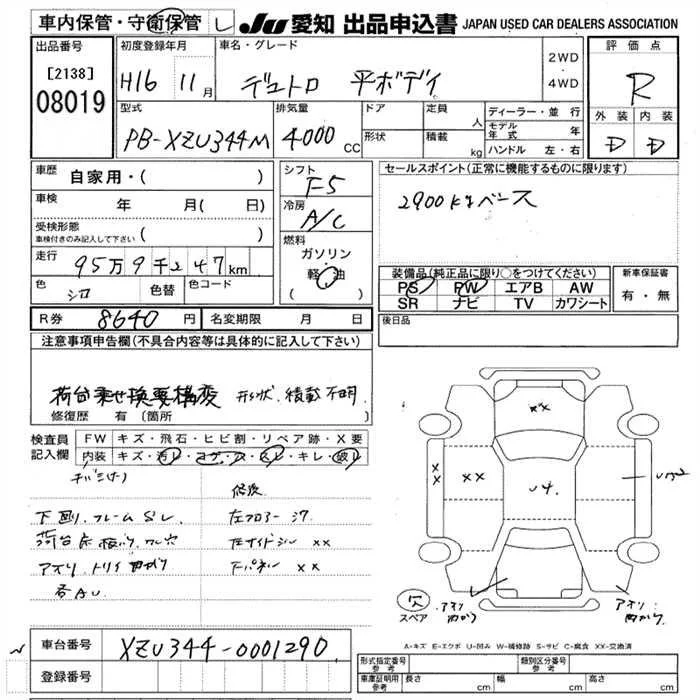 車内保管・守衛保管 レ
JU 愛知 出品申込書 JAPAN USED CAR DEALERS ASSOCIATION
出品番号
[2138]
08019
初度登録年月
H16 11月
車名・グレード
デュトロ 平ボデイ
2WD
・
4WD
評価点
R
外装 内装
D D
型式
PB-XZU344M
排気量
4000 CC
ドア
形状
定員 人
積載 kg
ディーラー・並行
モデル年式 年
ハンドル 左・右
車歴 自家用・( )
車検 年 月( 日)
受検形態
車検付きのみ記入して下さい ( )
走行 95万9千247km
色 シロ 色替 色コード
シフト
F5
冷房
A/C
燃料
ガソリン
軽油
( )
セールスポイント(正常に機能するものに限ります)
2900kgベース
装備品(純正品に限り○をつけてください)
PS PW エアB AW
SR ナビ TV カワシート
新車保証書
有・無
R券 8640円 名変期限 月 日
後日品
注意事項申告欄(不具合内容等は具体的に記入して下さい)
荷台乗せ換要構変 形状、積載不明
修復歴 有〔箇所 〕
検査員記入欄
FW キズ・飛石・ヒビ割・リペア跡・X要
内装 キズ・汚レ・コゲ・ス・スレ・キレ・破レ
修復
下回り、フレームSレ 左フロアーシワ
荷台床板バリ、穴 左サイドシル XX
アオリ、トリイ曲がり 下パネル XX
各AU
XX
X
X
XX
U4
欠
スペア
アオリ曲がり
アオリ曲がり
A-キズ E-エクボ U-凹み W-補修跡 S-サビ C-腐食 XX-交換済
車台番号 XZU344-0001290
登録番号
形式指定番号 参考
類別区分番号 参考
車庫証明用 参考
長さ cm 幅 cm 高さ cm